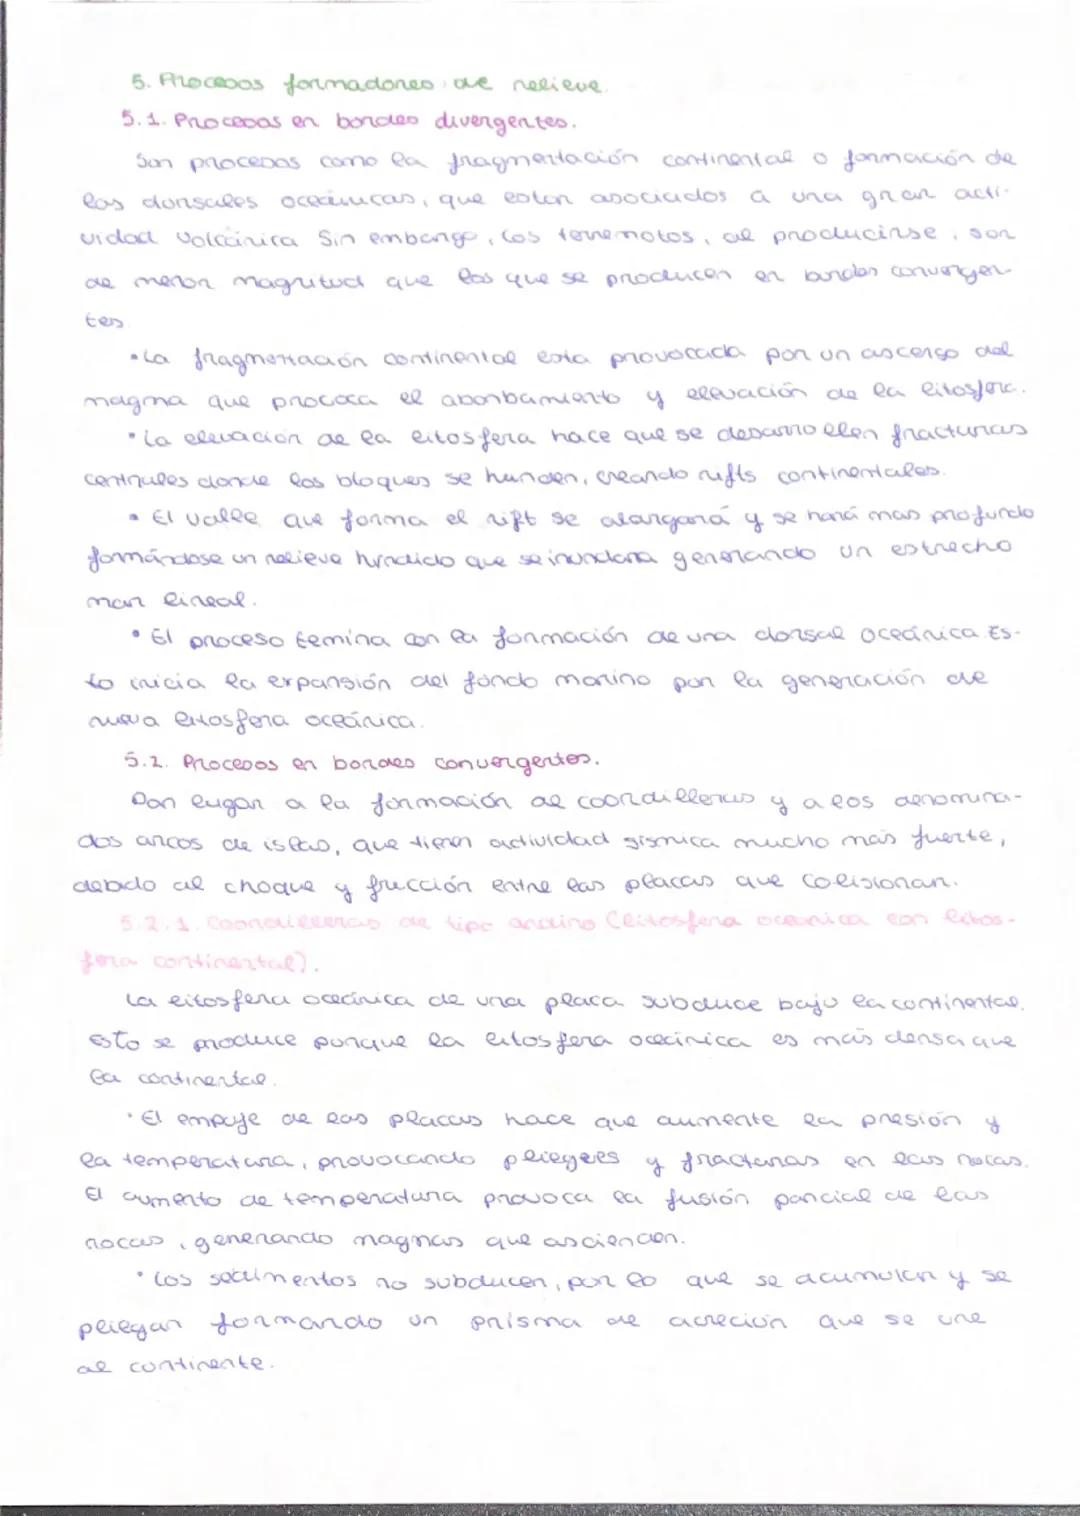 5. Procesos formadores de relieve.
5.1. Procesos en bordes divergentes.
Son procesos como la fragmentación continental o formación de
las dorsales oceánicas, que estan asociados a una gran acti-
vidad volcánica Sin embargo, los terremotos, al producirse, son
de menor magnitud que los que se producen en bordes convergen-
tes
•La fragmentación continental esta provocada por un ascenso del
magma que prococa el abombamiento y elevación de la litosfera.
•La elevación de la litosfera hace que se desarrollen fracturas
centrales donde los bloques se hunden, creando rifts continentales.
•El valle que forma el rift se alargará y se hará mas profundo
formándose un relieve hundido que se inundara generando un estrecho
mar lineal.
•El proceso temina con la formación de una dorsal oceánica. Es-
to inicia la expansión del fondo marino por la generación de
nueva litosfera oceánica.
5.2. Procesos en bordes convergentes.
Dan lugar a la formación de coordilleras y a los denomina-
dos arcos de islas, que tienen actividad sismica mucho más fuerte,
debido al choque y fricción entre las placas que colisionan.
5.2.1. Coordilleras de tipo andino (litosfera oceanica con litos-
fera continental).
La litosfera oceánica de una placa subduce bajo la continental.
Esto se produce porque la litosfera oceánica es más densa que
la continental.
•El empuje de las placas hace que aumente la presión y
la temperatura, provocando pliegues y fracturas en las rocas.
El aumento de temperatura provoca la fusión parcial de las
rocas, generando magmas que ascienden.
•Los sedimentos no subducen, por lo que se acumulan y se
pliegan formando un prisma de acreción que se une
al continente.